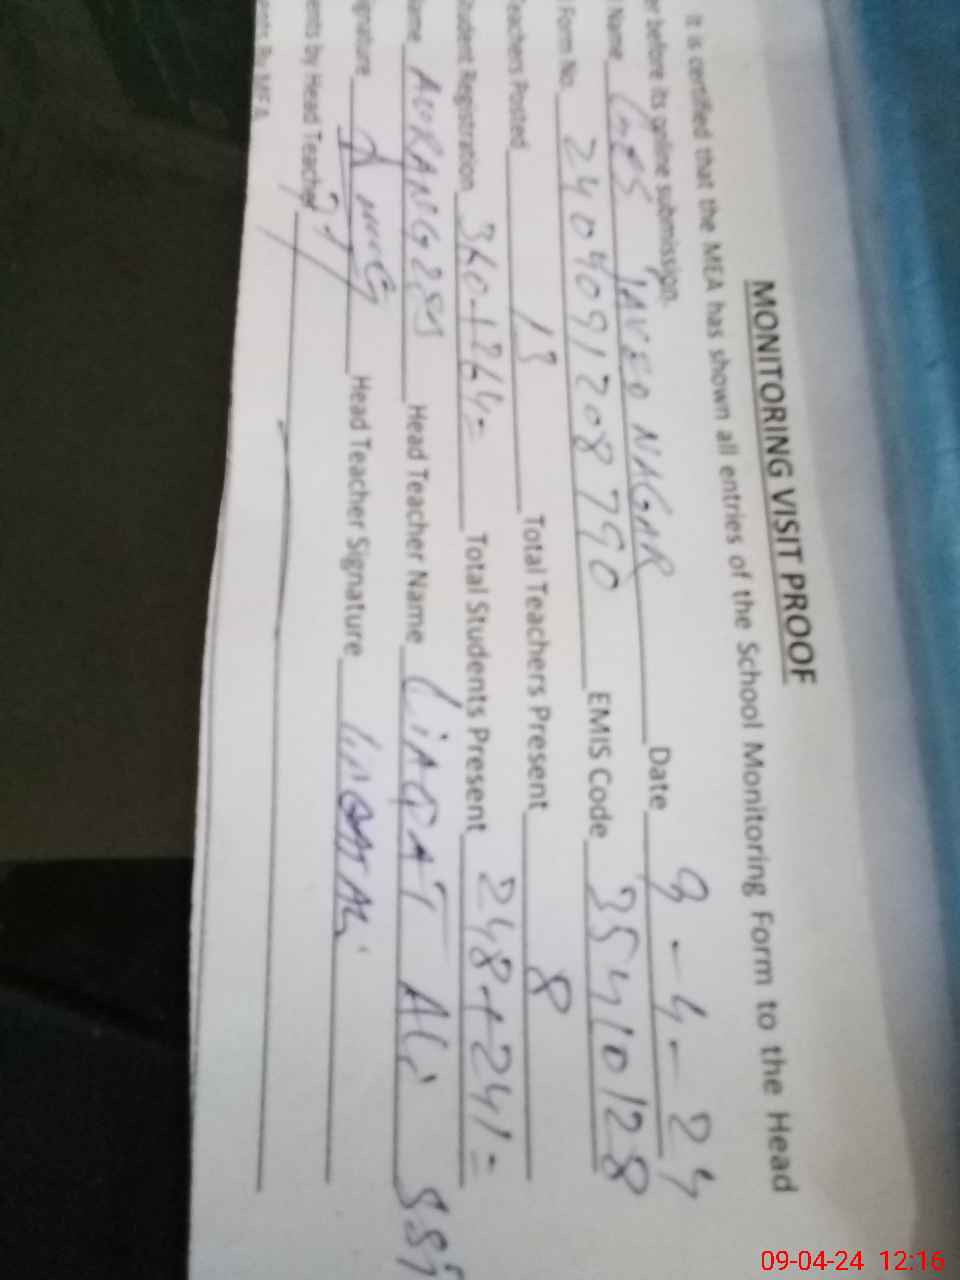 MONITORING VISIT PROOF
It is certified that the MEA has shown all entries of the School Monitoring Form to the Head
er before its online submission.
Name JAVED NAGAR Date 9-4-24
Form No. 2404091208790 EMIS Code 35410128
Teachers Posted 13 Total Teachers Present 8
tudent Registration Total Students Present 248+241=
ame Head Teacher Name LiAQAT Ali
ignature Head Teacher Signature
ents by Head Teacher
ents By MEA
09-04-24 12:16